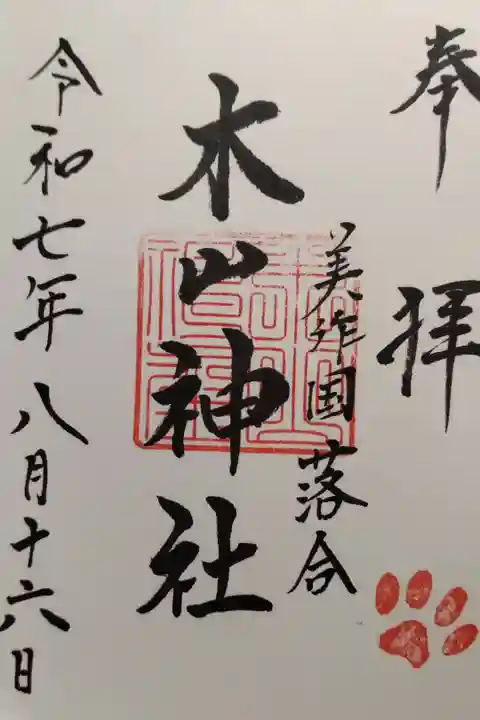 奉拝
美作国落合
木山神社
令和七年八月十六日